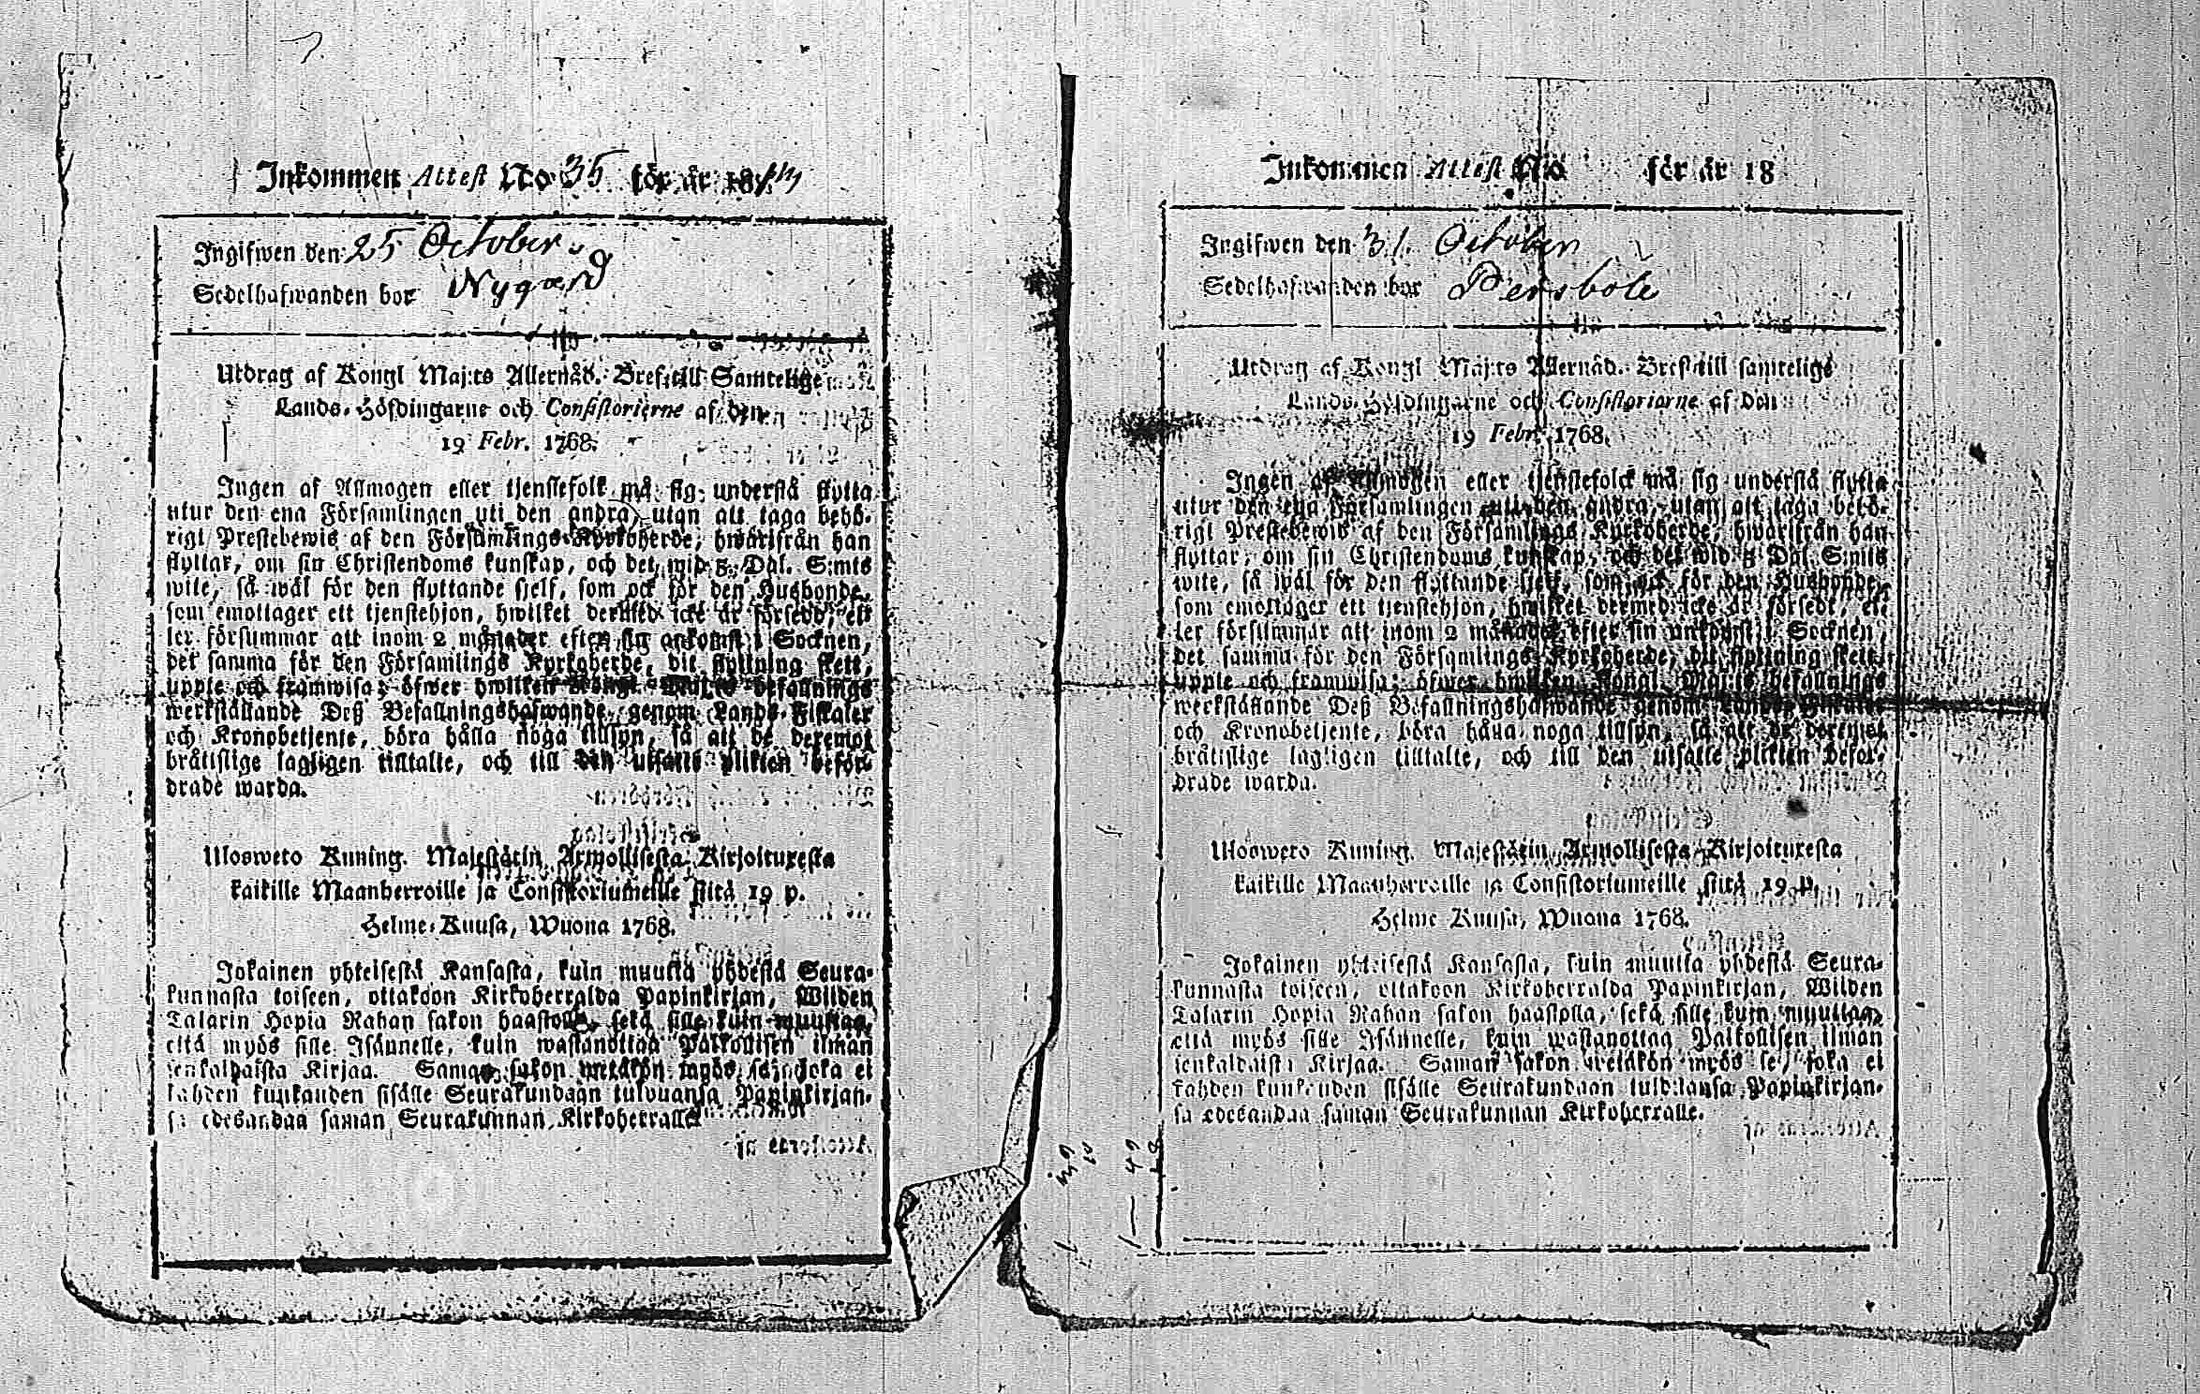 Inkommen Attest No 35 för år 18
Ingifwen den 25 October
Sedelhafwanden bor Nygård
Utdrag af Kongl Maj:ts Allernåd. Bref till Samtelige
Lands-Höfdingarne och Consistorierne af den
19 Febr. 1768.
Ingen af Allmogen eller tjenstefolk må sig understå flytta
utur den ena Församlingen uti den andra, utan att taga behö-
rigt Prestebewis af den Församlings Kyrkoherde, hwarifrån han
flyttar, om sin Christendoms kunskap, och det wid 3 Dal. S:mts
wite, så wäl för den flyttande sjelf, som ock för den Husbonde,
som emottager ett tjenstehjon, hwilket dermed icke är försedt, el-
ler försummar att inom 2 månader efter sin ankomst i Socknen,
det samma för den Församlings Kyrkoherde, dit flyttning skett,
uppte och framwisa; öfwer hwilken Kongl Maj:ts befallnings
werkställande Deß Befallningshafwande genom Lands-Fiskaler
och Kronobetjente, böra hålla noga tillsyn, så att de deremot
brätslige lagligen tilltalte, och till den utsatte plikten befor-
drade warda.
Ulosweto Kuning. Majestätin Armollisesta Kirjoituxesta
kaikille Maanherroille ja Consistoriumeille siitä 19 p.
Helme-Kuusa, Wuona 1768.
Jokainen yhteisestä Kansasta, kuin muutta yhdestä Seura-
kunnasta toiseen, ottakoon Kirkoherralda Papinkirjan, Wilden
Talarin Hopia Rahan sakon haastolla, sekä sille kuin muuttaa,
että myös sille Isännelle, kuin wastanottaa Palkollisen ilman
senkaldaista Kirjaa. Saman sakon wetäkön myös se, joka ei
kahden kuukauden sisälle Seurakundaan tulduansa Papinkirjan-
sa edesandaa saman Seurakunnan Kirkoherralle.
Inkommen Attest No för år 18
Ingifwen den 31. October
Sedelhafwanden bor Persböle
Utdrag af Kongl Maj:ts Allernåd. Bref till samtelige
Lands-Höfdingarne och Consistoriarne af den
19 Febr. 1768.
Ingen af Allmogen eller tjenstefolck må sig understå flytta
utur den ena Församlingen uti den andra, utan att taga behö-
rigt Prestebewis af den Församlings Kyrkoherde, hwarifrån han
flyttar, om sin Christendoms kunskap, och det wid 3 Dal. S:mts
wite, så wäl för den flyttande sjelf, som ock för den Husbonde,
som emottager ett tjenstehjon, hwilket dermed icke är försedt, el-
ler försummar att inom 2 månader efter sin ankomst i Socknen,
det samma för den Församlings Kyrkoherde, dit flyttning skett,
uppte och framwisa; öfwer hwilken Kongl. Maj:ts befallnings
werkställande Deß Befallningshafwande genom Lands-Fiskaler
och Kronobetjente, böra hålla noga tillsyn, så att de deremot
brätslige lagligen tilltalte, och till den utsatte plikten befor-
drade warda.
Ulosweto Kuning. Majestätin Armollisesta Kirjoituxesta
kaikille Maanherroille ja Consistoriumeille siitä 19 p.
Helme Kuusa, Wuona 1768.
Jokainen yhteisestä Kansasta, kuin muutta yhdestä Seura-
kunnasta toiseen, ottakoon Kirkoherralda Papinkirjan, Wilden
Talarin Hopia Rahan sakon haastolla, sekä sille kuin muuttaa,
että myös sille Isännelle, kuin wastanottaa Palkollisen ilman
senkaldaista Kirjaa. Saman sakon wetäkön myös se, joka ei
kahden kuukauden sisälle Seurakundaan tulduansa Papinkirjan-
sa edesandaa saman Seurakunnan Kirkoherralle.